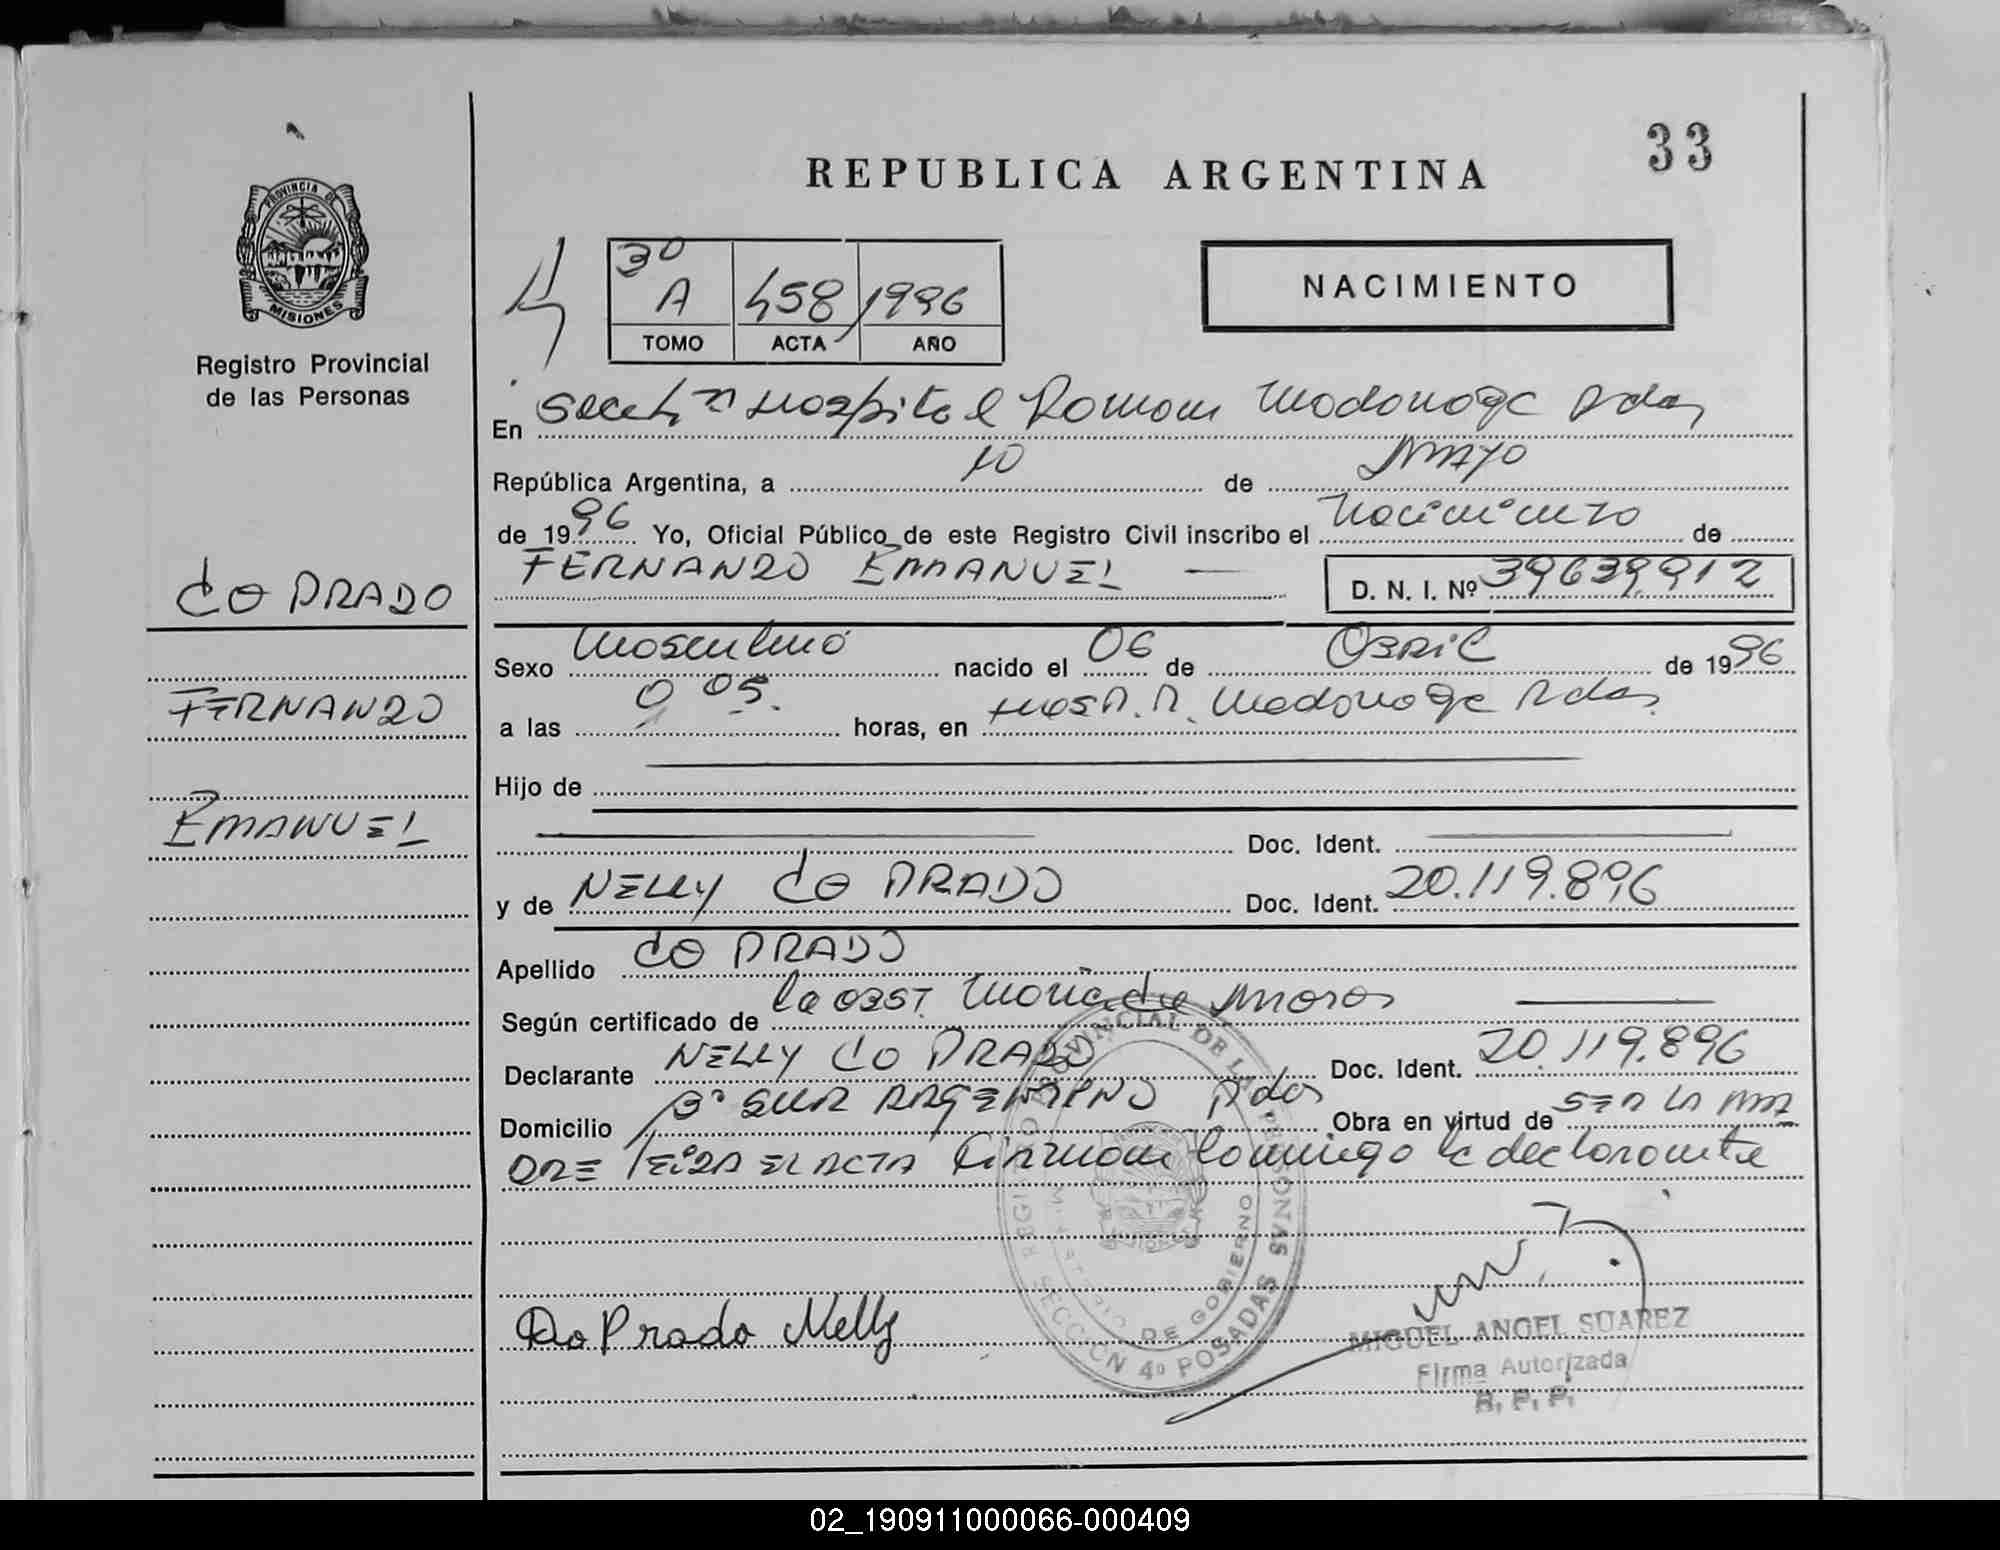 33
REPUBLICA ARGENTINA
PROVINCIA DE
MISIONES
Registro Provincial
de las Personas
3º
A 458 1996
TOMO ACTA AÑO
NACIMIENTO
En Secc 4ª Hospital Ramon Madariaga Pdas
República Argentina, a 10 de MAYO
de 1996 Yo, Oficial Público de este Registro Civil inscribo el Nacimiento de
FERNANDO EMANUEL D. N. I. Nº 39639.912
DO PRADO
FERNANDO
EMANUEL
Sexo Masculino nacido el 06 de ABRIL de 1996
a las 0 05. horas, en HOSP. R. Madariaga Pdas.
Hijo de
Doc. Ident.
y de NELLY DO PRADO Doc. Ident. 20.119.896
Apellido DO PRADO
Según certificado de la OBST.
Declarante NELLY DO PRADO Doc. Ident. 20.119.896
Domicilio Bº SUR ARGENTINO Pdas Obra en virtud de SER LA MA
DRE LEIDA EL ACTA Firman conmigo la declarante
REGISTRO PROVINCIAL DE LAS PERSONAS
SECCION 4º POSADAS
DE GOBIERNO
Do Prado Nelly
MIGUEL ANGEL SUAREZ
Firma Autorizada
R. P. P.
02_190911000066-000409